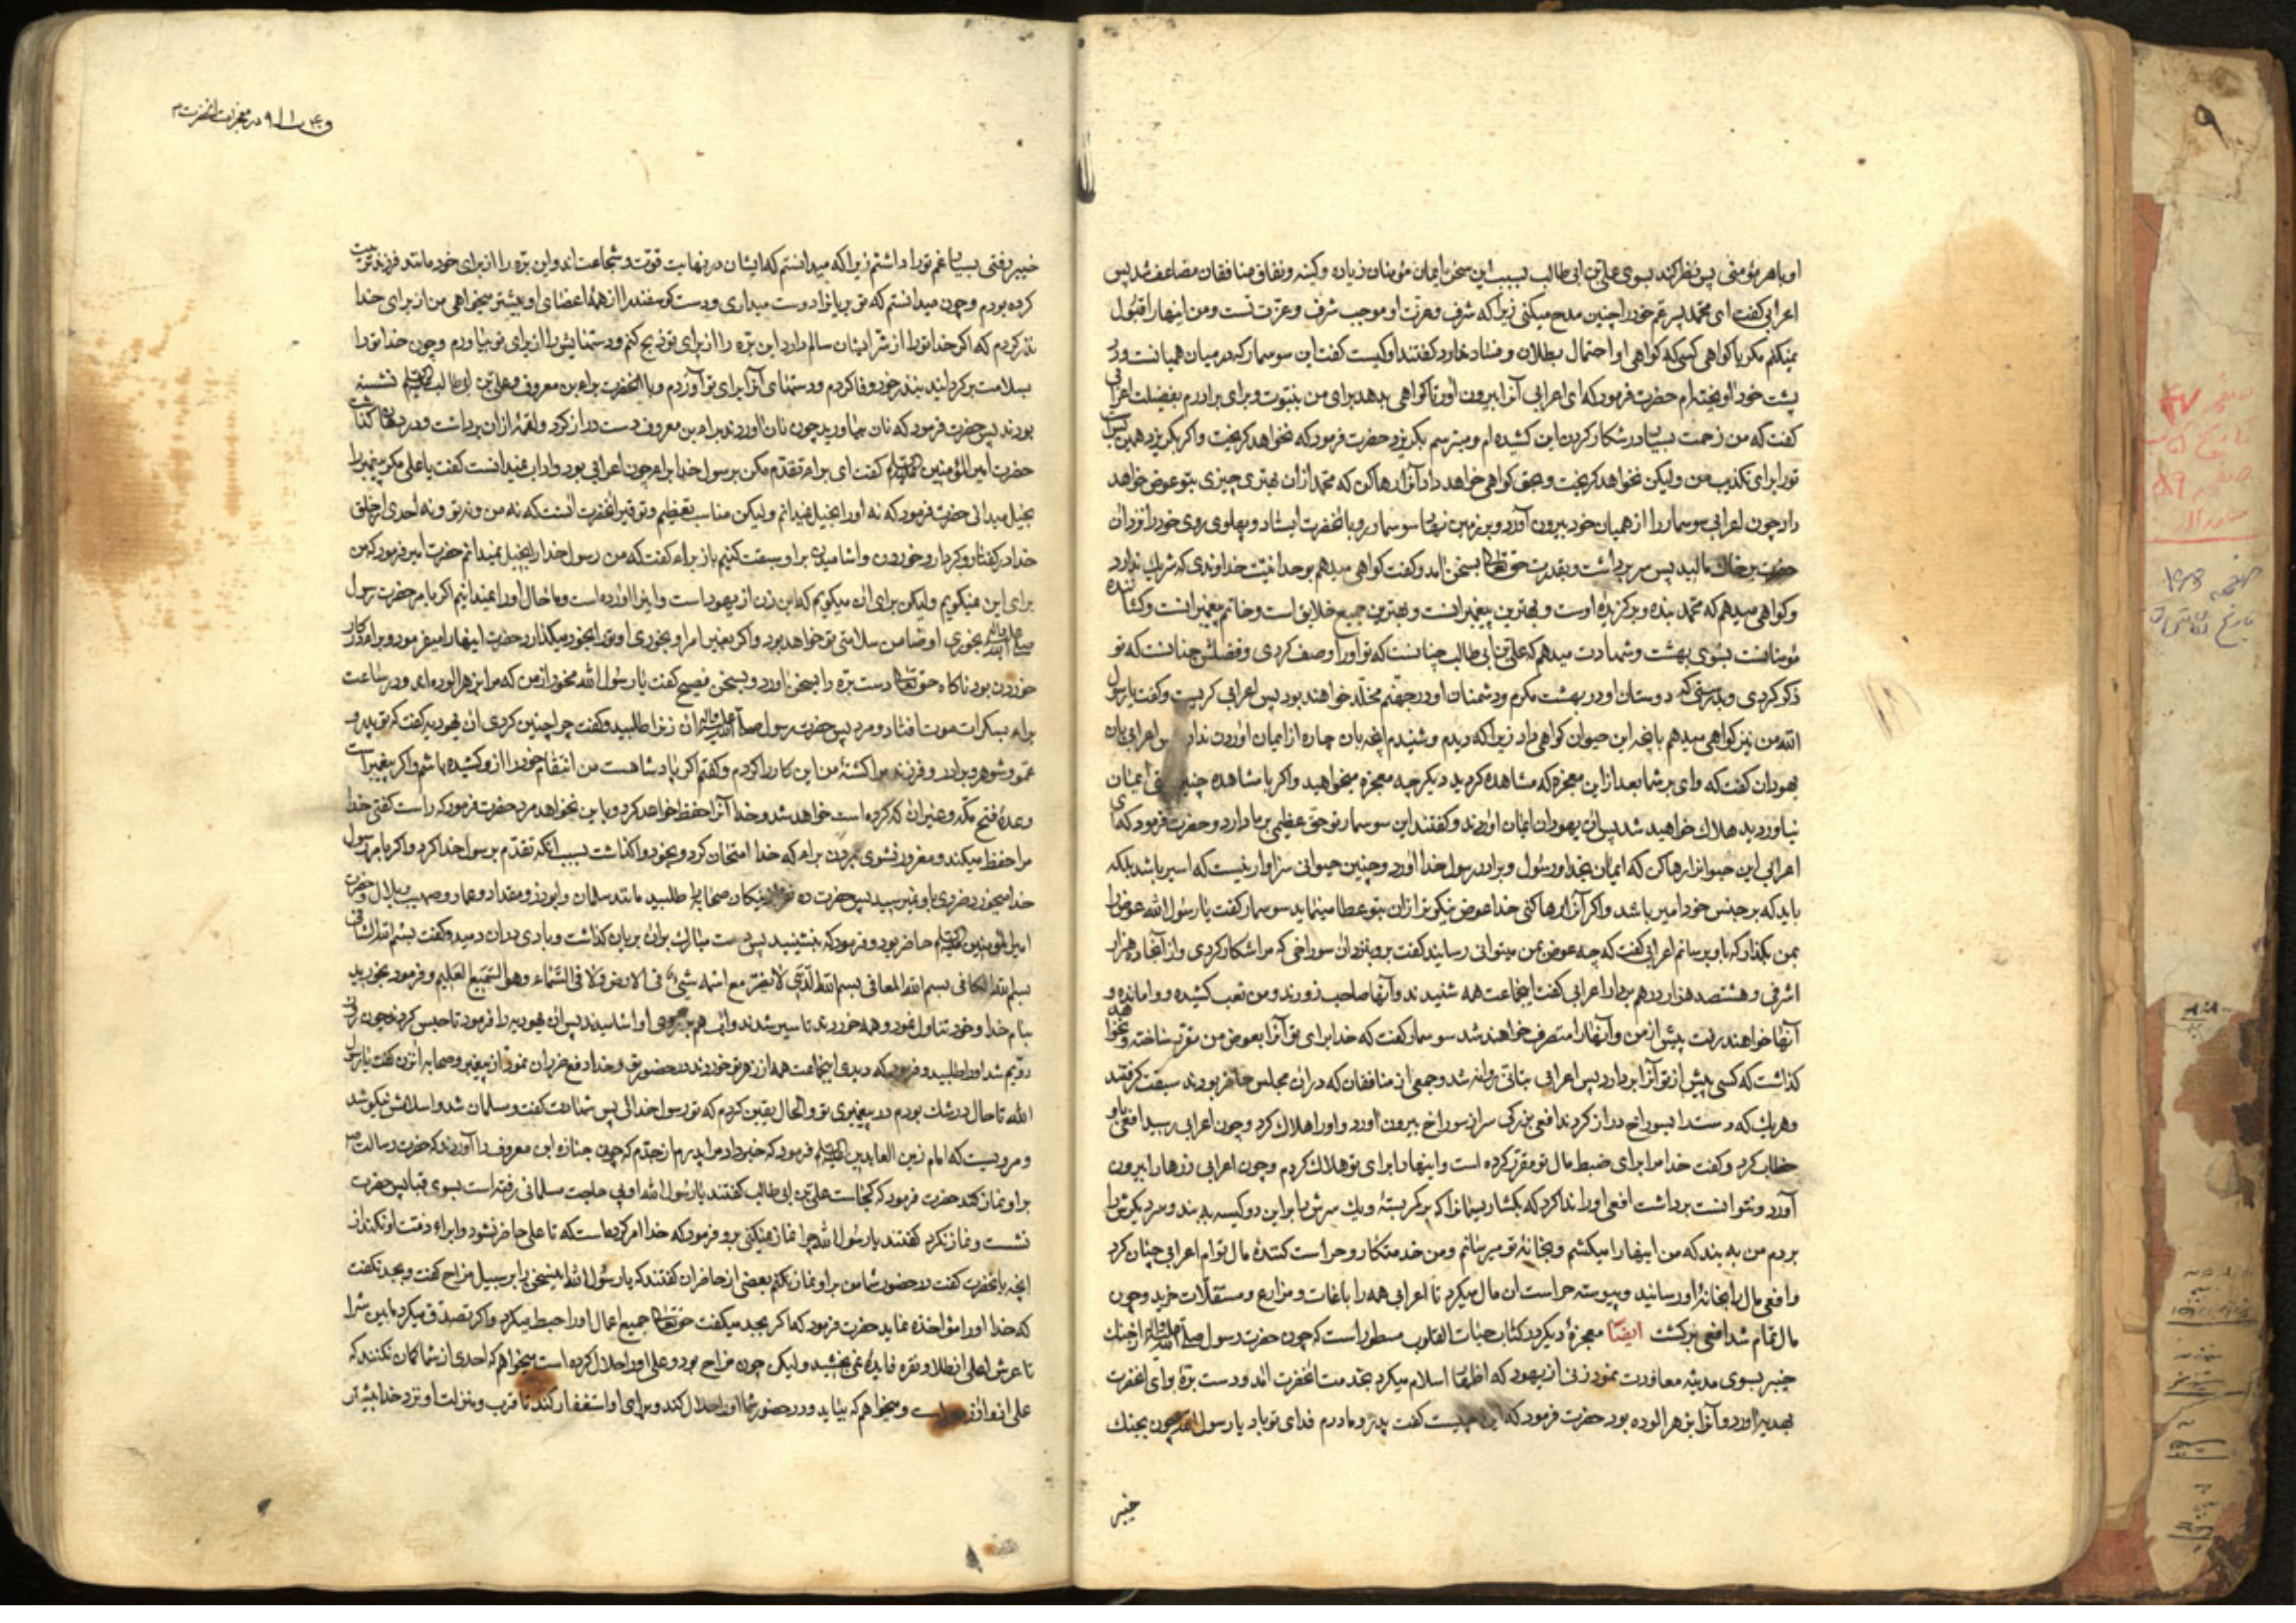 او با هر مؤمنی پس نظر کند بسوی علی بن ابی طالب بسبب این سخن ایمان مؤمنان زیاده و کینه و نفاق منافقان مضاعف شد پس
اعرابی گفت ای محمد پسر عم خود را چنین مدح میکنی زیرا که شرف و عزت او موجب شرف و عزت تست و من اینها را قبول
نمیکنم مکر با کواهی کسی که کواهی او احتمال بطلان و فساد ندارد گفتند او کیست گفت این سوسمار که در میان همیانست و در
پشت خود آویخته‌ام حضرت فرمود که ای اعرابی آنرا بیرون آور تا کواهی بدهد برای من بنبوت و برای برادرم بفضیلت اعرابی
گفت که من زحمت بسیار در شکار کردن این کشیده ام و میترسم بکریزد حضرت فرمود که نخواهد کریخت و اکر بکریزد همین بس است
تو را برای تکذیب من ولیکن نخواهد کریخت و بحق کواهی خواهد داد آنرا رها کن که محمد از آن بهتری چیزی بتو عوض خواهد
داد چون اعرابی سوسمار را از همیان خود بیرون آورد و بر زمین نهاد سوسمار رو بانحضرت ایستاد و پهلوی روی خود را نزد آن
حضرت بر خاک مالید پس سر برداشت و بقدرت حق تعالی بسخن آمد و گفت کواهی میدهم بوحدانیت خداوندی که شریک ندارد
و کواهی میدهم که محمد بنده و برکزیدهٔ اوست و بهترین پیغمبرانست و بهترین جمیع خلایق است و خاتم پیغمبرانست و کشاننده
مؤمنانست بسوی بهشت و شهادت میدهم که علی بن ابی طالب چنانست که تو او را وصف کردی و فضلش چنانست که تو
ذکر کردی و بدرستی که دوستان او در بهشت مکرم و دشمنان او در جهنم مخلد خواهند بود پس اعرابی کریست و گفت یا رسول
الله من نیز کواهی میدهم بانچه این حیوان کواهی داد زیرا که دیدم و شنیدم آنچه بان چاره از ایمان آوردن ندارم پس اعرابی بان
یهودان گفت که وای بر شما بعد از این معجزه که مشاهده کردید دیگر چه معجزه میخواهید و اکر با مشاهده چنین ایمان
نیاورید هلاک خواهید شد پس آن یهودان ایمان آوردند و گفتند این سوسمار تو حق عظیمی بر ما دارد و حضرت فرمود که ای
اعرابی این حیوان را رها کن که ایمان بخدا و رسول و برادر رسول خدا آورد و چنین حیوانی سزاوار نیست که اسیر باشد بلکه
باید که بر جنس خود امیر باشد و اکر آنرا رها کنی خدا عوض نیکوتر از آن بتو عطا مینماید سوسمار گفت یا رسول الله عوض را
بمن بگذار که باو برسانم اعرابی گفت که چه عوض بمن میتوانی رسانید گفت برو بنزد آن سوراخی که مرا شکار کردی و از آنجا ده هزار
اشرفی و هشتصد هزار درهم بردار اعرابی گفت اینجماعت همه شنیدند و آنها صاحب زورند و من تعب کشیده و وامانده و
آنها خواهند رفت پیش از من و آنها را متصرف خواهند شد سوسمار گفت که خدا برای تو آنرا بعوض من مقرر ساخته و نخواهد
کذاشت که کسی پیش از تو آنرا بردارد پس اعرابی بتانی روانه شد و جمعی از منافقان که در آن مجلس حاضر بودند سبقت گرفتند
و هر یک که دست را بسوراخ دراز کردند افعی بزرکی سر از سوراخ بیرون آورد و او را هلاک کرد و چون اعرابی رسید افعی باو
خطاب کرد و گفت خدا مرا برای ضبط مال تو مقرر کرده است و اینها را برای تو هلاک کردم و چون اعرابی زرها را بیرون
آورد و نتوانست برداشت افعی او را ندا کرد که بکشا ریسمانرا که بر کمر بستهٔ و یک سرش را بر این دو کیسه به بند و سر دیگرش را
بر دم من به بند که من اینها را میکشم و بخانهٔ تو میرسانم و من خدمتکار و حراست کنندهٔ مال توام اعرابی چنان کرد
و افعی مال را بخانهٔ او رسانید و پیوسته حراست آن مال میکرد تا اعرابی همه را باغات و مزارع و مستقلات خرید و چون
مال تمام شد افعی برگشت ایضا معجزهٔ دیگر در کتاب حیات القلوب مسطور است که چون حضرت رسول صلی الله علیه و آله از جنک
خیبر بسوی مدینه معاودت نمود زنی از یهود که اظهار اسلام میکرد بخدمت آنحضرت آمد و دست برهٔ برای آنحضرت
بهدیه آورد و آنرا بزهر آلوده بود حضرت فرمود که این چیست گفت پدر و مادرم فدای تو باد یا رسول الله چون بجنک
خیبر
در معجزات آنحضرت
خیبر رفتی بسیار غم تو را داشتم زیرا که میدانستم که ایشان در نهایت قوت و شجاعت‌اند و این بره را از برای خود مانند فرزند تربیت
کرده بودم و چون میدانستم که تو بریان را دوست میداری و دست کوسفند را از همهٔ اعضای او بیشتر میخواهی من از برای خدا
نذر کردم که اکر خدا تو را از شر ایشان سالم دارد این بره را از برای تو ذبح کنم و دستهایش را از برای تو بیاورم و چون خدا تو را
بسلامت برکردانید بنذر خود وفا کردم و دستهای آنرا برای تو آوردم و با آنحضرت براء بن معروف و علی بن ابی طالب نشسته
بودند پس حضرت فرمود که نان بیاورید چون نان آوردند براء بن معروف دست دراز کرد و لقمهٔ از آن برداشت و در دهان کذاشت
حضرت امیر المؤمنین گفت ای براء تقدم مکن بر رسول خدا براء چون اعرابی بود و آداب نمیدانست گفت یا علی مکر پیغمبر را
بخیل میدانی حضرت فرمود که نه او را بخیل نمیدانم ولیکن مناسب تعظیم و توقیر آنحضرت آنست که نه من و نه تو و نه احدی از خلق
خدا در گفتار و کردار و خوردن و آشامیدن بر او سبقت کنیم باز براء گفت که من رسول خدا را بخیل نمیدانم حضرت امیر فرمود که من
برای این نمیکویم ولیکن برای آن میکویم که این زن از یهود است و اینرا آورده است و ما حال او را نمیدانیم اکر بامر حضرت رسول
صلی الله علیه و آله بخوری او ضامن سلامتی تو خواهد بود و اکر بغیر امر او بخوری او تو را بخود میکذارد حضرت اینها را میفرمود و براء در کار
خوردن بود ناکاه حق تعالی دست بره را بسخن آورد و بسخن فصیح گفت یا رسول الله مخور از من که مرا بزهر آلوده‌اند و در ساعت
براء بسکرات موت افتاد و مرد پس حضرت رسول صلی الله علیه و آله آن زنرا طلبید و گفت چرا چنین کردی آن یهودیه گفت که تو پدر و
عم و شوهر و برادر و فرزند مرا کشتهٔ من این کار را کردم و گفتم اکر پادشاهست من انتقام خود را از او کشیده باشم و اکر پیغمبر است
وعدهٔ فتح مکه و غیر آن که کرده است خواهد شد و خدا آنرا حفظ خواهد کرد و باین نخواهد مرد حضرت فرمود که راست گفتی خدا
مرا حفظ میکند و مغرور نشوی بمردن براء که خدا امتحان کرد و بخود واکذاشت بسبب آنکه تقدم بر رسول خدا کرد و اکر بامر رسول
خدا میخورد ضرری باو نمیرسید پس حضرت ده نفر از نیکان صحابه را طلبید مانند سلمان و ابوذر و مقداد و عمار و صهیب و بلال و حضرت
امیر المؤمنین حاضر بود و فرمود که بنشینید پس دست مبارک بر آن بریان کذاشت و بادی در آن دمید و گفت بسم الله الشافی
بسم الله الکافی بسم الله المعافی بسم الله الذی لا یضر مع اسمه شیء فی الارض و لا فی السماء و هو السمیع العلیم و فرمود بخورید
بنام خدا و خود تناول نمود و همه خوردند تا سیر شدند و آب هم بر روی او آشامیدند پس آن یهودیه را فرمود تا حبس کردند چون روز
دویم شد او را طلبید و فرمود که دیدی اینجماعت همه از زهر تو خوردند در حضور تو و خدا دفع ضرر آن نمود از پیغمبر و صحابه آن زن گفت یا رسول
الله تا حال در شک بودم در پیغمبری تو و الحال یقین کردم که تو رسول خدائی پس شهادت گفت و مسلمان شد و اسلامش نیکو شد
و مرویست که امام زین العابدین فرمود که خبر داد مرا پدرم از جدم که چون جنازه ابن معروف را آوردند که حضرت رسالت
بر او نماز کند حضرت فرمود که کجاست علی بن ابی طالب گفتند یا رسول الله او پی حاجت مسلمانی رفته است بسوی قبا پس حضرت
نشست و نماز نکرد گفتند یا رسول الله چرا نماز نمیکنی بر او فرمود که خدا امر کرده است که تا علی حاضر نشود و ابراء ذمت او نکند از
آنچه بانحضرت گفت در حضور شما من بر او نماز نکنم بعضی از حاضران گفتند که یا رسول الله اینسخن را بر سبیل مزاح گفت و بجد نگفت
که خدا او را مؤاخذه نماید حضرت فرمود که اکر بجد میگفت حق تعالی جمیع اعمال او را حبط میکرد و اکر تصدق میکرد مابین ثری
تا عرش اعلی از طلا و نقره فایده نمی‌بخشید ولیکن چون مزاح بود و علی او را حلال کرده است میخواهم که احدی از شما کمان نکنند که
علی از او آزرده است و میخواهم که بیاید و در حضور شما او را حلال کند و برای او استغفار کند تا قرب و منزلت او نزد خدا بیشتر